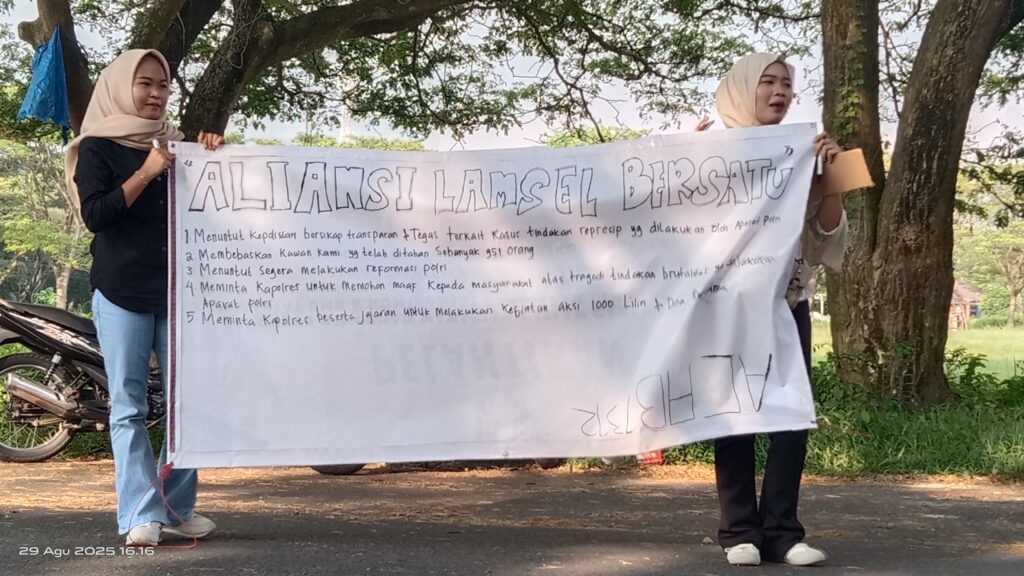 "ALIANSI LAMSEL BERSATU"
1. Menuntut Kepolisian bersikap transparan & Tegas terkait Kasus tindakan represip yg dilakukan oleh Aparat Polri
2 Membebaskan Kawan Kami yg telah ditahan Sebanyak 951 orang
3 Menuntut Segera melakukan reformasi polri
4. Meminta Kapolres untuk Memohon maaf Kepada masyarakat atas tragedi tindakan brutalitas yg dilakukan
Aparat polri
5 Meminta Kapolres beserta jajaran untuk melakukan Kegiatan aksi 1000 Lilin & Doa bersama
ACAB 1312
29 Agu 2025 16.16